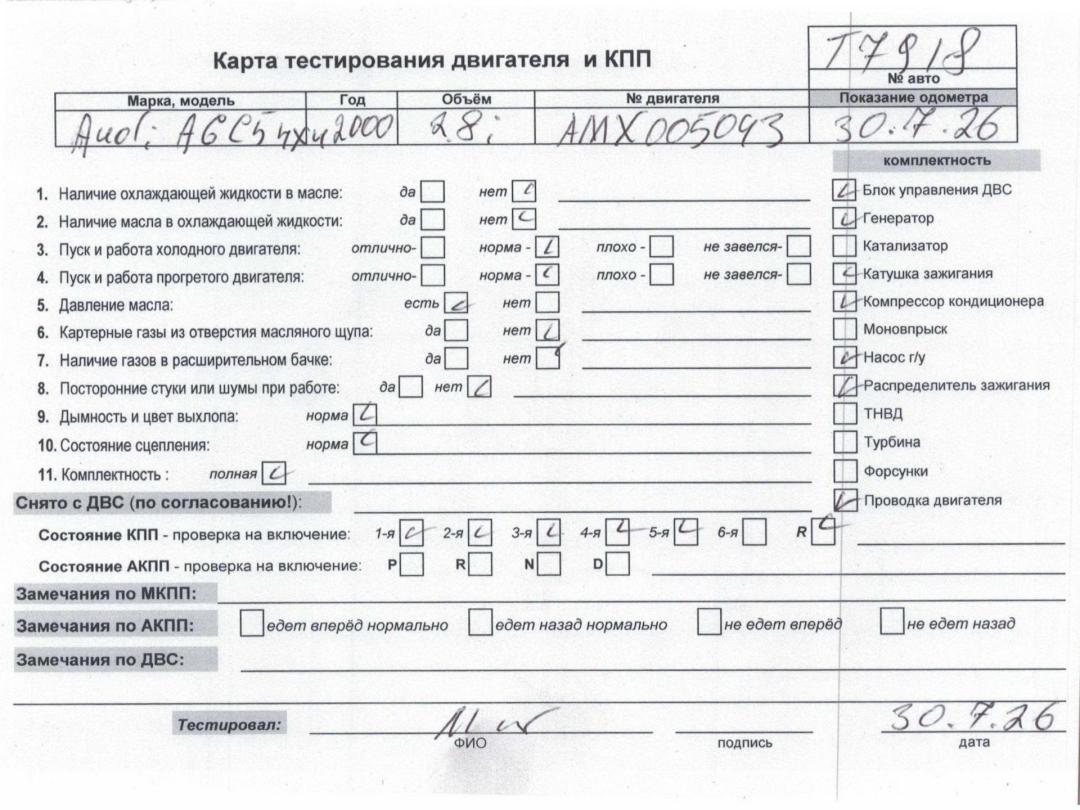 Карта тестирования двигателя и КПП
T7918
№ авто
Марка, модель Год Объём № двигателя Показание одометра
Audi A6C5 2000 2.8i AMX005093 30.7.26
комплектность
1. Наличие охлаждающей жидкости в масле: да нет
2. Наличие масла в охлаждающей жидкости: да нет
3. Пуск и работа холодного двигателя: отлично- норма - плохо - не завелся-
4. Пуск и работа прогретого двигателя: отлично- норма - плохо - не завелся-
5. Давление масла: есть нет
6. Картерные газы из отверстия масляного щупа: да нет
7. Наличие газов в расширительном бачке: да нет
8. Посторонние стуки или шумы при работе: да нет
9. Дымность и цвет выхлопа: норма
10. Состояние сцепления: норма
11. Комплектность : полная
Блок управления ДВС
Генератор
Катализатор
Катушка зажигания
Компрессор кондиционера
Моновпрыск
Насос г/у
Распределитель зажигания
ТНВД
Турбина
Форсунки
Проводка двигателя
Снято с ДВС (по согласованию!):
Состояние КПП - проверка на включение: 1-я 2-я 3-я 4-я 5-я 6-я R
Состояние АКПП - проверка на включение: P R N D
Замечания по МКПП:
Замечания по АКПП: едет вперёд нормально едет назад нормально не едет вперёд не едет назад
Замечания по ДВС:
Тестировал: 30.7.26
ФИО подпись дата